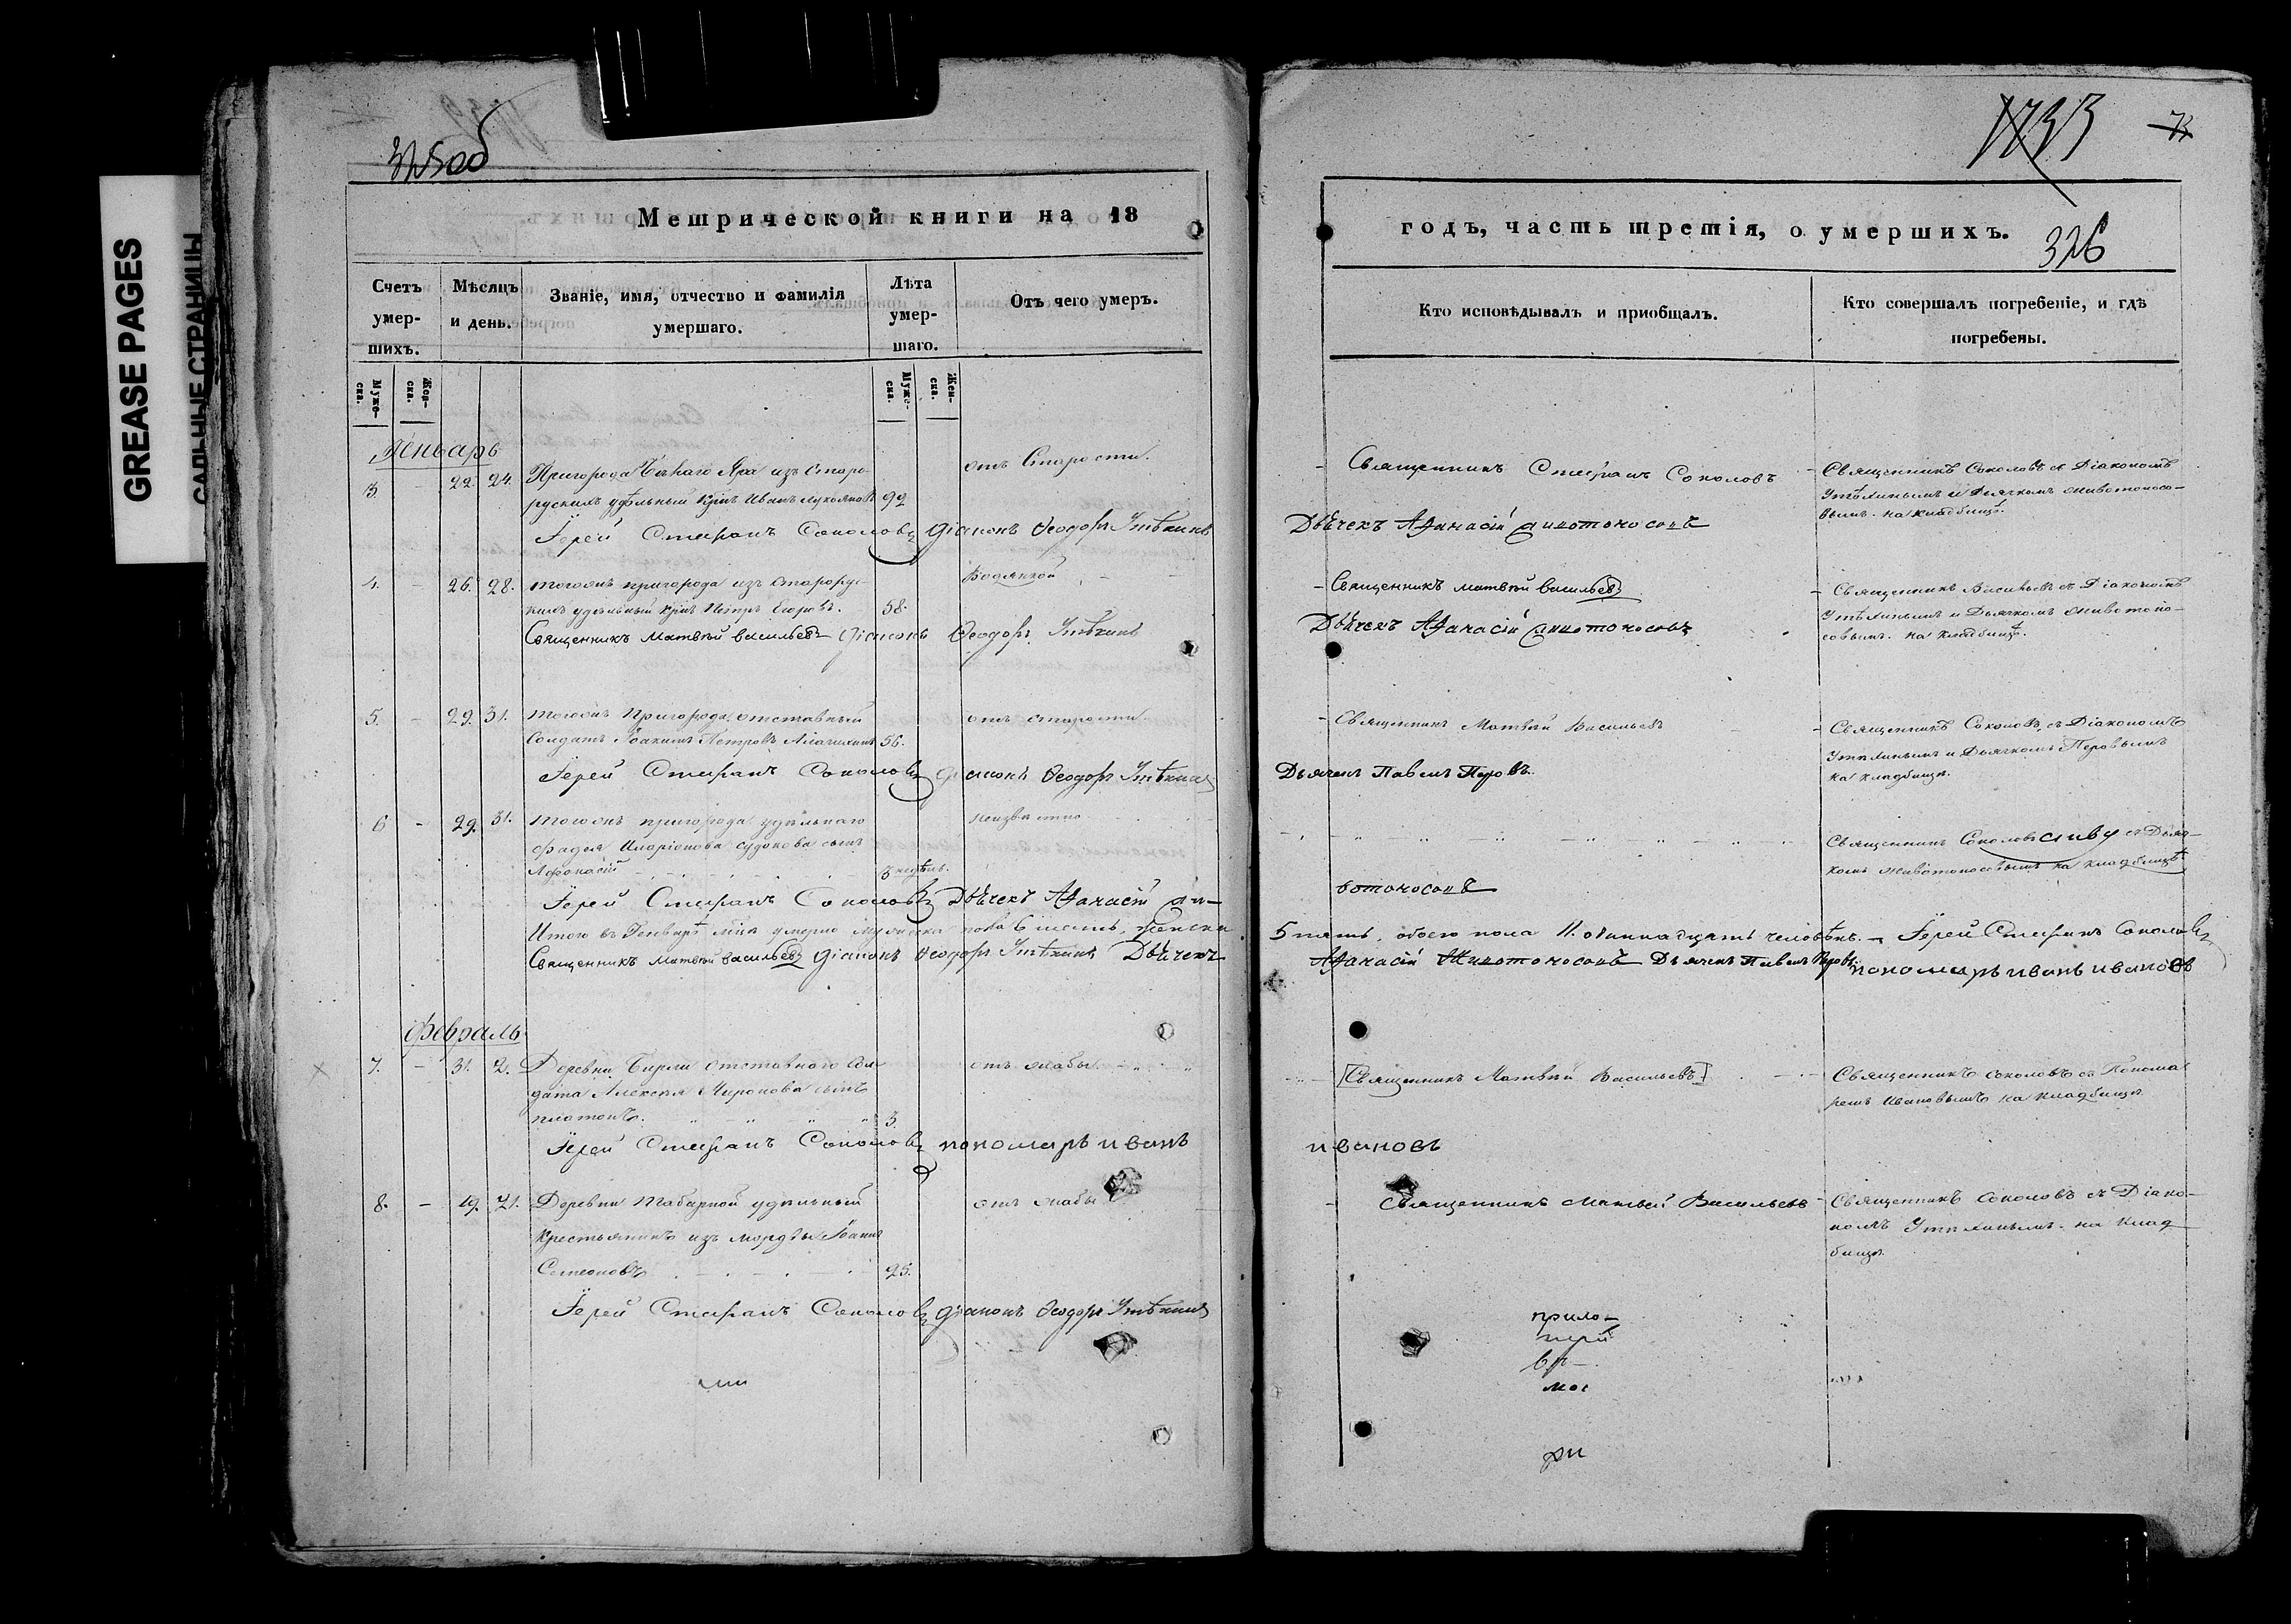 GREASE PAGES
САЛЬНЫЕ СТРАНИЦЫ
325об
Метрической книги на 18
Счетъ умер-шихъ.
Мѣсяцъ и день.
Званіе, имя, отчество и фамилія
умершаго.
Лѣта умер-шаго.
Отъ чего умеръ.
Муже-ска.
Жен-ска.
Муже-ска.
Жен-ска.
Генварь
3. - 22. 24. Пригорода Бѣлаго Яра изъ старо- отъ Старости.
рускихъ удѣльный крнъ Иванъ 99
Іерей Стефанъ Соколовъ Діаконъ Ѳеодоръ Утѣхинъ
4. - 26. 28. тогожъ пригорода изъ старорус- Водянкой
кихъ удѣльный крнъ Петръ Егоровъ. 58.
Священникъ Матвѣй Васильевъ Діаконъ Ѳеодоръ Утѣхинъ
5. - 29. 31. тогожъ Пригорода отставный отъ старости.
Солдатъ Іоакимъ Петровъ 56.
Іерей Стефанъ Соколовъ Діаконъ Ѳеодоръ Утѣхинъ
6 - 29. 31. тогожъ пригорода удѣльнаго неизвѣстно
Фадея Иларіонова сынъ
Афонасій 3 недѣль.
Іерей Стефанъ Соколовъ Дьячекъ Афанасій Жи-
Итого въ Генварѣ мцѣ умерло мужеска пола 6 шесть, женска
Священникъ Матвѣй Васильевъ Діаконъ Ѳеодоръ Утѣхинъ Дьячекъ
Февраль
7. - 31. 2. Деревни Бирли отставного сол- отъ жабы
дата Алексѣя Миронова сынъ
платонъ. 3.
Іерей Стефанъ Соколовъ пономарь иванъ
8. - 19. 21. Деревни Табарной удѣльный отъ жабы
крестьянинъ изъ мордвы Іоаннъ
Семеоновъ 25.
Іерей Стефанъ Соколовъ Діаконъ Ѳеодоръ Утѣхинъ
1733
73
годъ, часть третія, о умершихъ.
326
Кто исповѣдывалъ и пріобщалъ.
Кто совершалъ погребеніе, и гдѣ
погребены.
Священникъ Стефанъ Соколовъ
Священникъ Соколовъ съ Діакономъ
Утѣхинымъ и Дьячкомъ Животоносо-
вымъ. на кладбищѣ.
Дьячекъ Афанасій Животоносовъ
Священникъ Матвѣй Васильевъ
Священникъ Васильевъ съ Діакономъ
Утѣхинымъ и Дьячкомъ Животоно-
совымъ. на кладбищѣ.
Дьячекъ Афанасій Животоносовъ
Священникъ Матвѣй Васильевъ
Священникъ Соколовъ, съ Діакономъ
Утѣхинымъ и Дьячкомъ Перовымъ
на кладбищѣ.
Дьячекъ Павелъ Перовъ.
Священникъ Соколовъ съ Дьяч-
комъ Животоносовымъ на кладбищѣ
вотоносовъ
5 пять, обоего пола 11. одиннадцать человѣкъ. Іерей Стефанъ Соколовъ
Афанасій Животоносовъ Дьячекъ Павелъ Перовъ пономарь иванъ ивановъ
[Священникъ Матвѣй Васильевъ]
Священникъ Соколовъ съ Понома
ремъ Ивановымъ на кладбищѣ
ивановъ
Священникъ Матвей Васильевъ
Священникъ Соколовъ съ Діако-
номъ Утѣхинымъ. на клад
бищѣ.
прило-